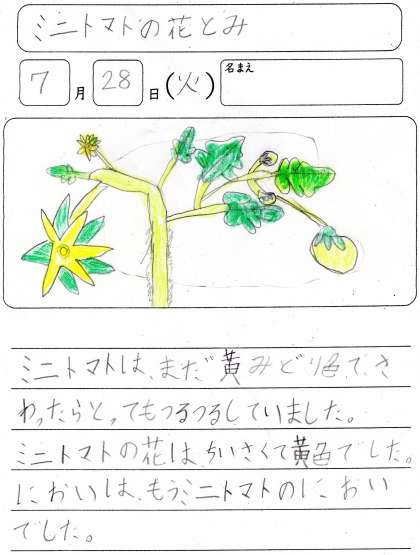 ミニトマトの花とみ
7月28日(火)
名まえ
ミニトマトは、まだ黄みどり色で、さ
わったらとってもつるつるしていました。
ミニトマトの花は、ちいさくて黄色でした。
においは、もうミニトマトのにおい
でした。